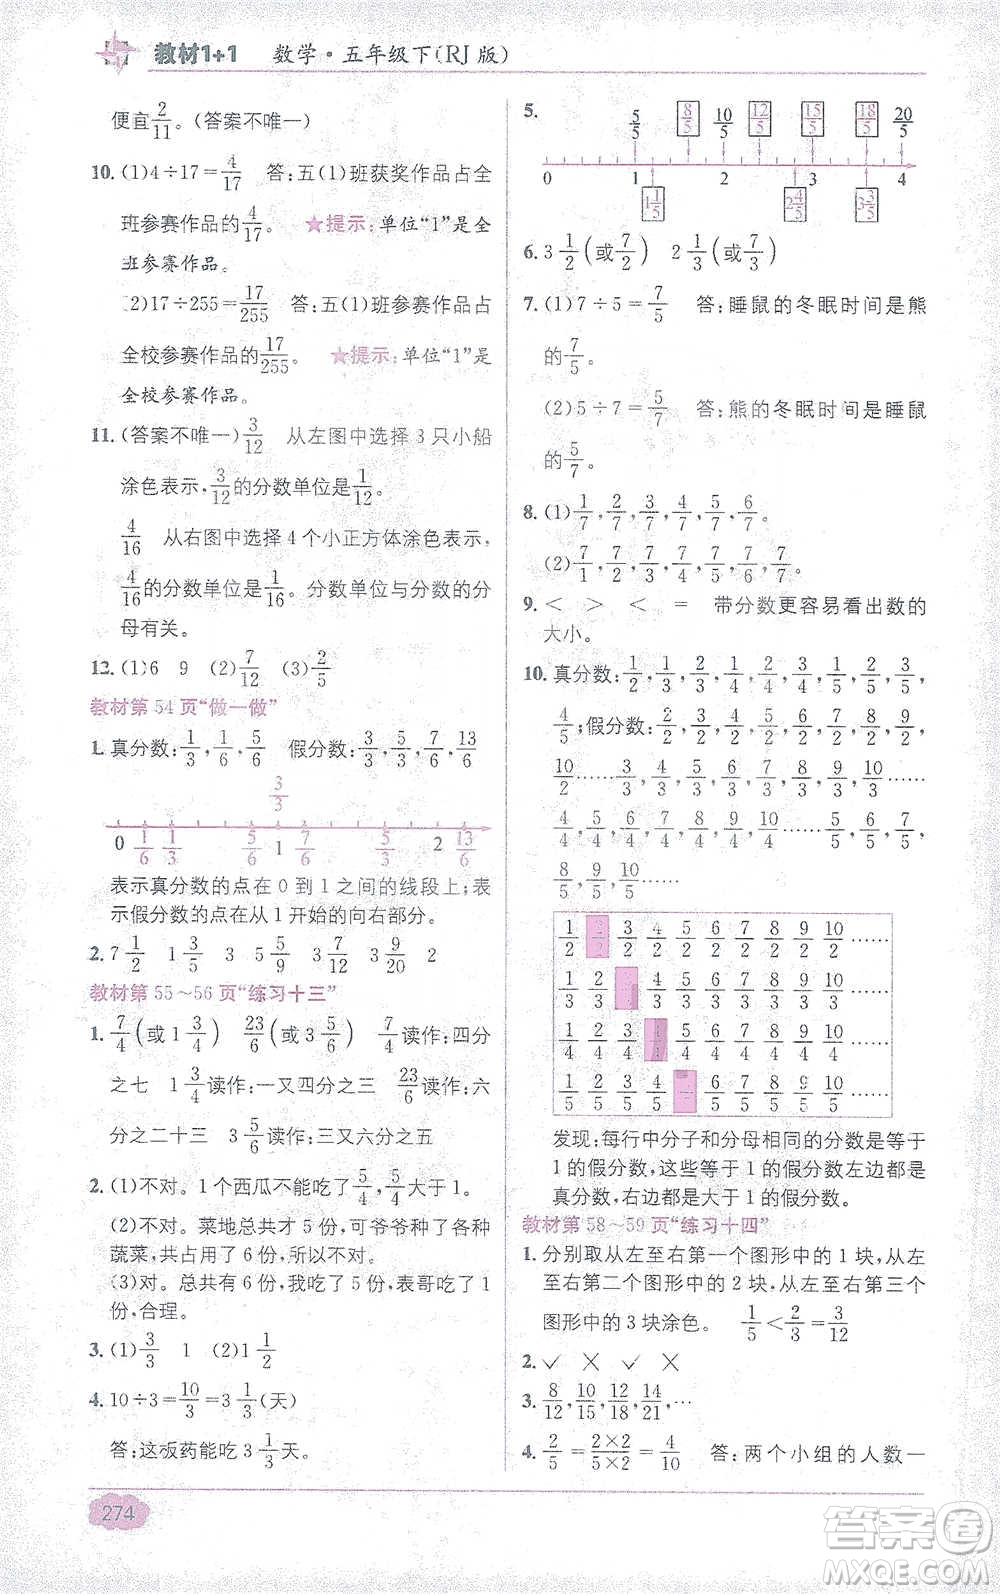 教材1+1 数学·五年级下(RJ版)
便宜2/11。(答案不唯一)
10. (1)4÷17=4/17 答:五(1)班获奖作品占全
班参赛作品的4/17。 ★提示:单位“1”是全
班参赛作品。
(2)17÷255=17/255 答:五(1)班参赛作品占
全校参赛作品的17/255。 ★提示:单位“1”是
全校参赛作品。
11. (答案不唯一)3/12 从左图中选择3只小船
涂色表示,3/12的分数单位是1/12。
4/16 从右图中选择4个小正方体涂色表示,
4/16的分数单位是1/16。分数单位与分数的分
母有关。
12. (1)6 9 (2)7/12 (3)2/5
教材第54页“做一做”
1. 真分数:1/3,1/6,5/6 假分数:3/3,5/3,7/6,13/6
3/3
0 1/6 1/3 5/6 1 7/6 5/3 2 13/6
表示真分数的点在0到1之间的线段上;表
示假分数的点在从1开始的向右部分。
2. 7 1/2 1 3/5 3 5 5/9 3 7/10 3 9/20 2
教材第55~56页“练习十三”
1. 7/4(或1 3/4) 23/6(或3 5/6) 7/4读作:四分
之七 1 3/4读作:一又四分之三 23/6读作:六
分之二十三 3 5/6读作:三又六分之五
2. (1)不对。1个西瓜不能吃了5/4,5/4大于1。
(2)不对。菜地总共有5份,可爷爷种两种
蔬菜,共占用了6份,所以不对。
(3)对。总共有6份,我吃了5份,表哥吃了1
份,合理。
3. (1)3/3 1 (2)1 1/2
4. 10÷3=10/3=3 1/3(天)
答:这板药能吃3 1/3天。
274
5.
5/5 8/5 10/5 12/5 15/5 18/5 20/5
0 1 2 3 4
1 1/5 2 4/5 3 3/5
6. 3 1/2(或7/2) 2 1/3(或7/3)
7. (1)7÷5=7/5 答:睡鼠的冬眠时间是熊
的7/5。
(2)5÷7=5/7 答:熊的冬眠时间是睡鼠
的5/7。
8. (1)1/7,2/7,3/7,4/7,5/7,6/7。
(2)7/1,7/2,7/3,7/4,7/5,7/6,7/7。
9. < > < = 带分数更容易看出数的
大小。
10. 真分数:1/2,1/3,2/3,1/4,2/4,3/4,1/5,2/5,3/5,
4/5;假分数:2/2,3/2,4/2,5/2,6/2,7/2,8/2,9/2,
10/2……3/3,4/3,5/3,6/3,7/3,8/3,9/3,10/3……
4/4,5/4,6/4,7/4,8/4,9/4,10/4……5/5,6/5,7/5,
8/5,9/5,10/5……
1/2 2/2 3/2 4/2 5/2 6/2 7/2 8/2 9/2 10/2 ……
1/3 2/3 3/3 4/3 5/3 6/3 7/3 8/3 9/3 10/3 ……
1/4 2/4 3/4 4/4 5/4 6/4 7/4 8/4 9/4 10/4 ……
1/5 2/5 3/5 4/5 6/5 7/5 8/5 9/5 10/5 ……
发现:每行中分子和分母相同的分数是等于
1的假分数,这些等于1的假分数左边都是
真分数,右边都是大于1的假分数。
教材第58~59页“练习十四”
1. 分别取从左至右第一个图形中的1块,从左
至右第二个图形中的2块,从左至右第三个
图形中的3块涂色。 1/5<2/3=3/12
2. ✓ ✕ ✓ ✕
3. 8/12,10/15,12/18,14/21。
4. 2/5=2×2/5×2=4/10 答:两个小组的人数一
答案圈
MXQE.COM